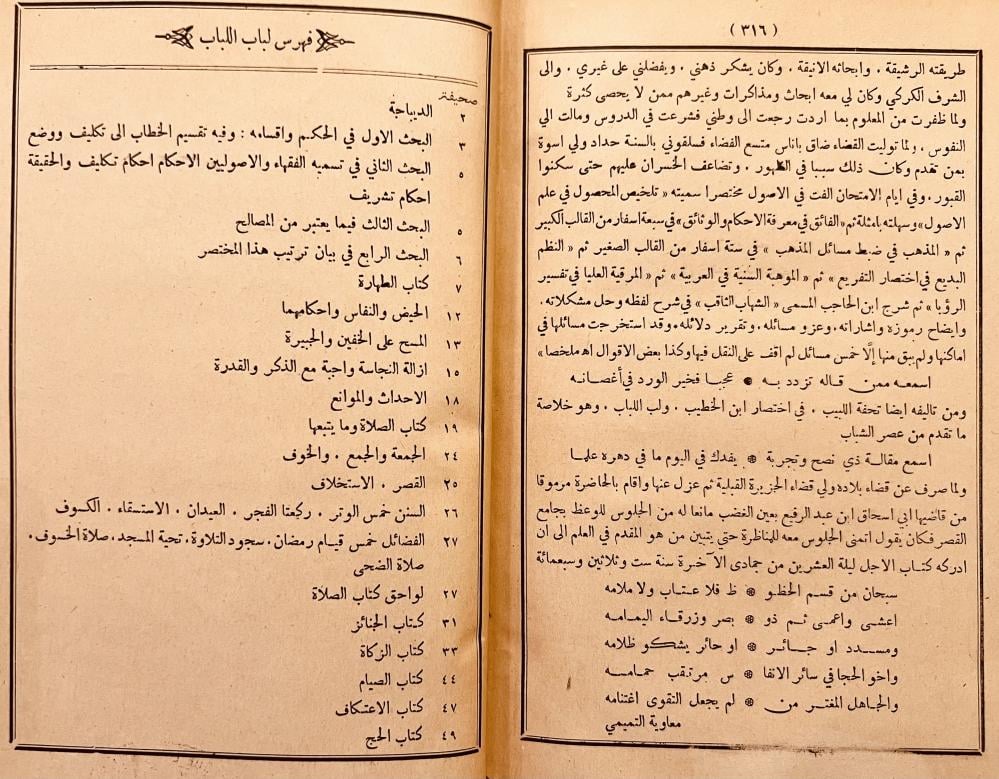 ( ٣١٦ )
طريقته الرشيقة . وابحاثه الانيقة . وكان يشكر ذهني . ويفضلني على غيري . والى
الشرف الكركي وكان لي معه ابحاث ومذاكرات وغيرهم ممن لا يحصى كثرة
ولما ظفرت من المعلوم بما اردت رجعت الى وطني فشرعت في الدروس ومالت الي
النفوس . ولما توليت القضاء ضاق باناس متسع الفضاء فسلقوني بالسنة حداد ولي اسوة
بمن تقدم وكان ذلك سببا في الظهور . وتضاعف الخسران عليهم حتى سكنوا
القبور . وفي ايام الامتحان الفت في الاصول مختصرا سميته « تلخيص المحصول في علم
الاصول » وسهلته بامثلة ثم « الفائق في معرفة الاحكام والوثائق » في سبعة اسفار من القالب الكبير
ثم « المذهب في ضبط مسائل المذهب » في ستة اسفار من القالب الصغير ثم « النظم
البديع في اختصار التفريع » ثم « الموهبة السنية في العربية » ثم « المرقبة العليا في تفسير
الرؤيا » ثم شرح ابن الحاجب المسمى « الشهاب الثاقب » في شرح لفظه وحل مشكلاته .
وايضاح رموزه واشاراته . وعزو مسائله . وتقرير دلائله . وقد استخرجت مسائلها في
اماكنها ولم يبق منها إلّا خمس مسائل لم اقف على النقل فيها وكذا بعض الاقوال اه ملخصا »
اسمعه ممن قاله تزدد به ❊ عجبا فخير الورد في أغصانه
ومن تاليفه ايضا تحفة اللبيب . في اختصار ابن الخطيب . ولب اللباب . وهو خلاصة
ما تقدم من عصر الشباب
اسمع مقالة ذي نصح وتجربة ❊ يفدك في اليوم ما في دهره علما
ولما صرف عن قضاء بلاده ولي قضاء الجزيرة القبلية ثم عزل عنها واقام بالحاضرة مرموقا
من قاضيها ابي اسحاق ابن عبد الرفيع بعين الغضب مانعا له من الجلوس للوعظ بجامع
القصر فكان يقول اتمنى الجلوس معه للمناظرة حتي يتبين من هو المقدم في العلم الى ان
ادركه كتاب الاجل ليلة العشرين من جمادى الآخرة سنة ست وثلاثين وسبعمائة
سبحان من قسم الحظو ❊ ظ فلا عتاب ولا ملامه
اعشى واعمى ثم ذو ❊ بصر وزرقاء اليمامه
ومسدد او جائر ❊ او حائر يشكو ظلامه
واخو الحجا في سائر الانفا ❊ س مرتقب حمامه
والجاهل المغتر من ❊ لم يجعل التقوى اغتنامه
معاوية التميمي
فهرس لباب اللباب
صحيفة
٢ الديباجة
٣ البحث الاول في الحكيم واقسامه : وفيه تقسيم الخطاب الى تكليف ووضع
٥ البحث الثاني في تسميه الفقهاء والاصوليين الاحكام احكام تكليف والحقيقة
احكام تشريف
٥ البحث الثالث فيما يعتبر من المصالح
٦ البحث الرابع في بيان ترتيب هذا المختصر
٧ كتاب الطهارة
١٢ الحيض والنفاس واحكامهما
١٣ المسح على الخفين والجبيرة
١٥ ازالة النجاسة واجبة مع الذكر والقدرة
١٨ الاحداث والموانع
١٩ كتاب الصلاة وما يتبعها
٢٤ الجمعة والجمع . والخوف
٢٥ القصر . الاستخلاف
٢٦ السنن خمس الوتر . ركعتا الفجر . العيدان . الاستسقاء . الكسوف
٢٧ الفضائل خمس قيام رمضان . سجود التلاوة . تحية المسجد . صلاة الخسوف .
صلاة الضحى
٢٧ لواحق كتاب الصلاة
٣١ كتاب الجنائز
٣٣ كتاب الزكاة
٤٤ كتاب الصيام
٤٧ كتاب الاعتكاف
٤٩ كتاب الحج